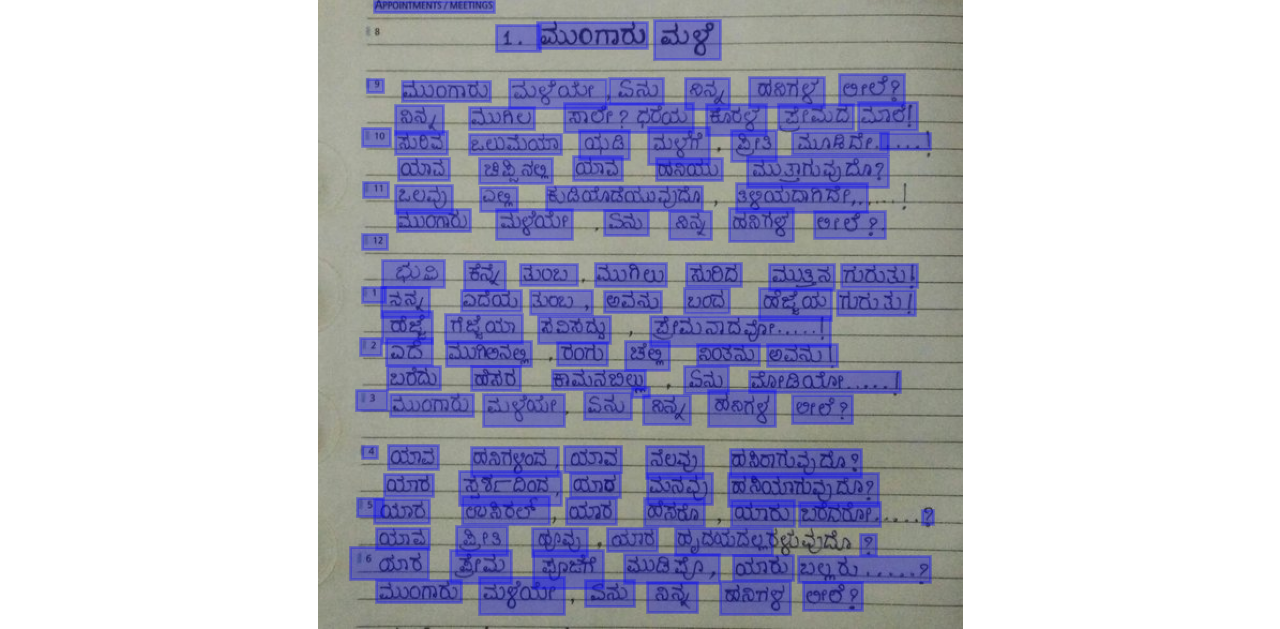 APPOINTMENTS / MEETINGS
8
1. ಮುಂಗಾರು ಮಳೆ
9 ಮುಂಗಾರು ಮಳೆಯೇ, ಏನು ನಿನ್ನ ಹನಿಗಳ ಲೀಲೆ?
ನಿನ್ನ ಮುಗಿಲ ಸಾಲೇ? ಧರೆಯ ಕೊರಳ ಪ್ರೇಮದ ಮಾಲೆ!
10 ಸುರಿವ ಒಲುಮೆಯಾ ಜಡಿ ಮಳೆಗೆ, ಪ್ರೀತಿ ಮೂಡಿದೇ.....!
ಯಾವ ಚಿಪ್ಪಿನಲ್ಲಿ ಯಾವ ಹನಿಯು ಮುತ್ತಾಗುವುದೊ?
11 ಒಲವು ಎಲ್ಲಿ ಕುಡಿಯೊಡೆಯುವುದೊ, ತಿಳಿಯದಾಗಿದೇ......!
ಮುಂಗಾರು ಮಳೆಯೇ, ಏನು ನಿನ್ನ ಹನಿಗಳ ಲೀಲೆ?
12
ಭುವಿ ಕೆನ್ನೆ ತುಂಬ, ಮುಗಿಲು ಸುರಿದ ಮುತ್ತಿನ ಗುರುತು!
1 ನನ್ನ ಎದೆಯ ತುಂಬ, ಅವಳು ಬಂದ ಹೆಜ್ಜೆಯ ಗುರುತು!
ಹೆಜ್ಜೆ ಗೆಜ್ಜೆಯಾ ಸವಿಸದ್ದು, ಪ್ರೇಮನಾದವೋ.....!
2 ಎದೆ ಮುಗಿಲಿನಲ್ಲಿ, ರಂಗು ಚೆಲ್ಲಿ ನಿಂತಳು ಅವಳು!
ಬರೆದು ಹೆಸರ ಕಾಮನಬಿಲ್ಲು, ಏನು ಮೋಡಿಯೋ.....!
3 ಮುಂಗಾರು ಮಳೆಯೇ, ಏನು ನಿನ್ನ ಹನಿಗಳ ಲೀಲೆ?
4 ಯಾವ ಹನಿಗಳಿಂದ, ಯಾವ ನೆಲವು ಹಸಿರಾಗುವುದೊ?
ಯಾರ ಸ್ಪರ್ಶದಿಂದ, ಯಾರ ಮನವು ಹಸಿಯಾಗುವುದೊ?
5 ಯಾರ ಉಸಿರಲ್, ಯಾರ ಹೆಸರೊ, ಯಾರು ಬರೆದರೋ.....?
ಯಾವ ಪ್ರೀತಿ ಹೂವು, ಯಾರ ಹೃದಯದಲ್ಲರಳುವುದೊ ?
6 ಯಾರ ಪ್ರೇಮ ಪೂಜೆಗೆ ಮುಡಿಪೊ, ಯಾರು ಬಲ್ಲರು.....?
ಮುಂಗಾರು ಮಳೆಯೇ, ಏನು ನಿನ್ನ ಹನಿಗಳ ಲೀಲೆ?